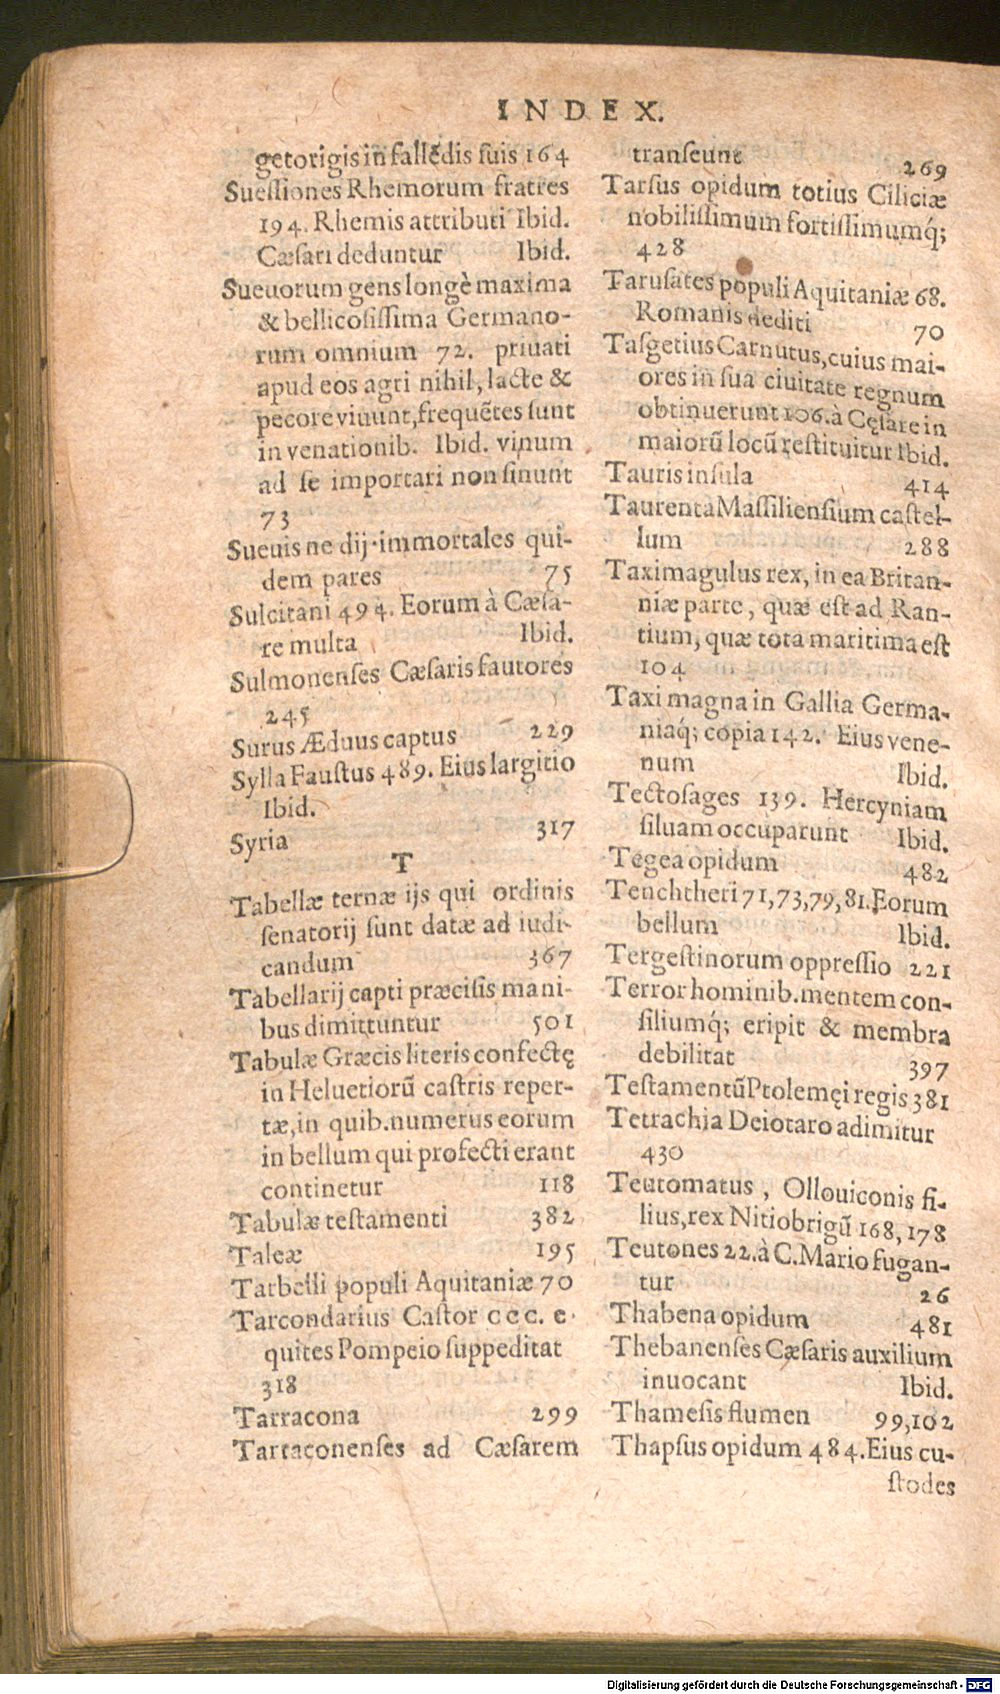 INDEX.
getorigis in fallẽdis suis 164
Suessiones Rhemorum fratres
194. Rhemis attributi Ibid.
Cæsari deduntur Ibid.
Sueuorum gens longè maxima
& bellicosissima Germano-
rum omnium 72. priuati
apud eos agri nihil, lacte &
pecore viuunt, frequẽtes sunt
in venationib. Ibid. vinum
ad se importari non sinunt
73
Sueuis ne dij immortales qui-
dem pares 75
Sulcitani 494. Eorum à Cæsa-
re multa Ibid.
Sulmonenses Cæsaris fautores
245
Surus Æduus captus 229
Sylla Faustus 489. Eius largitio
Ibid.
Syria 317
T
Tabellæ ternæ ijs qui ordinis
senatorij sunt datæ ad iudi-
candum 367
Tabellarij capti præcisis mani-
bus dimittuntur 501
Tabulæ Græcis literis confectę
in Heluetiorũ castris reper-
tæ, in quib. numerus eorum
in bellum qui profecti erant
continetur 118
Tabulæ testamenti 382
Taleæ 195
Tarbelli populi Aquitaniæ 70
Tarcondarius Castor ccc. e-
quites Pompeio suppeditat
318
Tarracona 299
Tarraconenses ad Cæsarem
transeunt 269
Tarsus opidum totius Ciliciæ
nobilissimum fortissimumq́;
428
Tarusates populi Aquitaniæ 68.
Romanis dediti 70
Tasgetius Carnutus, cuius mai-
ores in sua ciuitate regnum
obtinuerunt 106. à Cęsare in
maiorũ locũ restituitur Ibid.
Tauris insula 414
Taurenta Massiliensium castel-
lum 288
Taximagulus rex, in ea Britan-
niæ parte, quæ est ad Ran-
tium, quæ tota maritima est
104
Taxi magna in Gallia Germa-
niaq́; copia 142. Eius vene-
num Ibid.
Tectosages 139. Hercyniam
siluam occuparunt Ibid.
Tegea opidum 482
Tenchtheri 71, 73, 79, 81. Eorum
bellum Ibid.
Tergestinorum oppressio 221
Terror hominib. mentem con-
siliumq́; eripit & membra
debilitat 397
Testamentũ Ptolemęi regis 381
Tetrachia Deiotaro adimitur
430
Teutomatus, Ollouiconis fi-
lius, rex Nitiobrigũ 168, 178
Teutones 22. à C. Mario fugan-
tur 26
Thabena opidum 481
Thebanenses Cæsaris auxilium
inuocant Ibid.
Thamesis flumen 99, 102
Thapsus opidum 484. Eius cu-
stodes
Digitalisierung gefördert durch die Deutsche Forschungsgemeinschaft - DFG